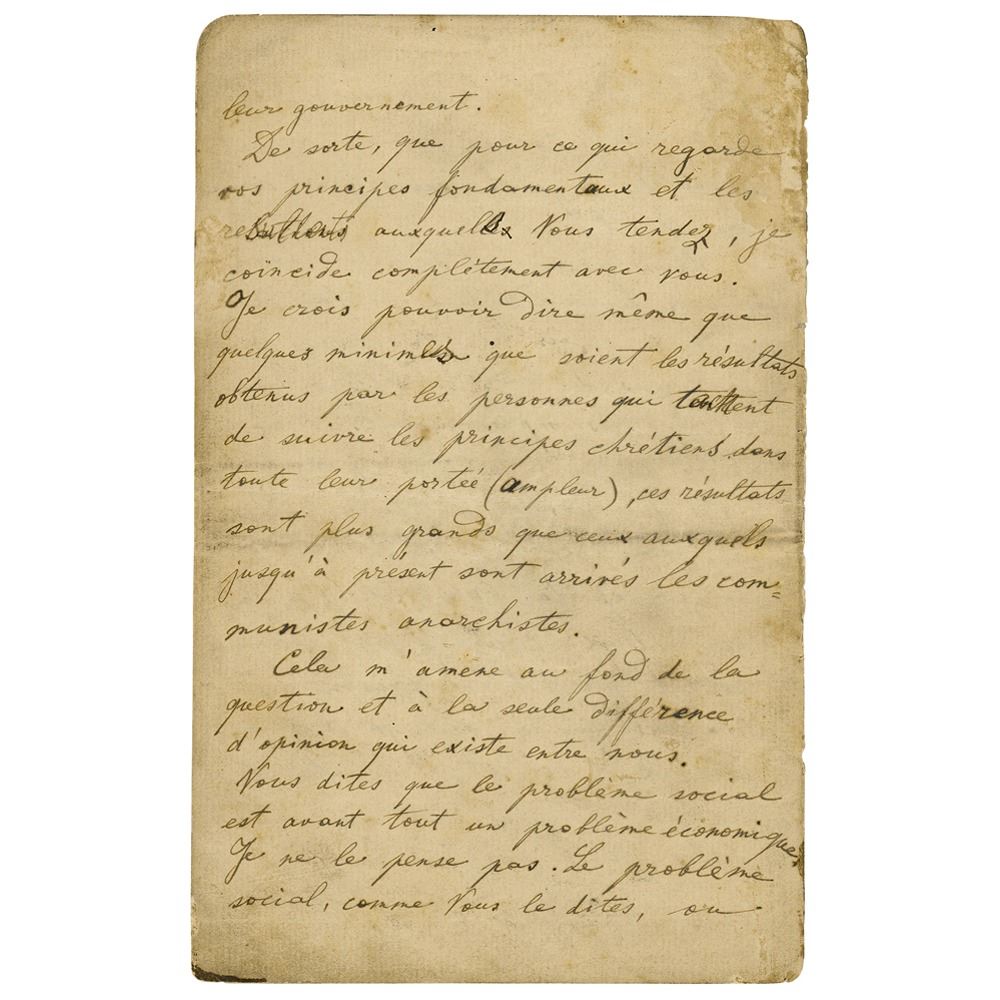 leur gouvernement.
De sorte, que pour ce qui regarde
vos principes fondamentaux et les
résultats auxquels Vous tendez, je
coïncide complétement avec vous.
Je crois pouvoir dire même que
quelques minimes que soient les résultats
obtenus par les personnes qui tachent
de suivre les principes chrétiens dans
toute leur portée (ampleur), ces résultats
sont plus grands que ceux auxquels
jusqu'à présent sont arrivés les com=
munistes anarchistes.
Cela m'amene au fond de la
question et à la seule différence
d'opinion qui existe entre nous.
Vous dites que le problème social
est avant tout un problème économique.
Je ne le pense pas. Le problème
social, comme Vous le dites, ou